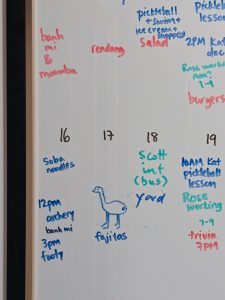 pickleball
+ swim +
ice cream +
salad
banh
mi
&
moomba
rendang
pickleball
lesson
2PM Kat
doc
Rose working
7-9
burgers
16
17
18
19
Soba
noodles
12pm
archery
banh mi
3pm
footy
fajitas
Scott
int
(bus)
yard
10AM Kat
pickleball
lesson
Rose
working
7-9
trivia
7PM